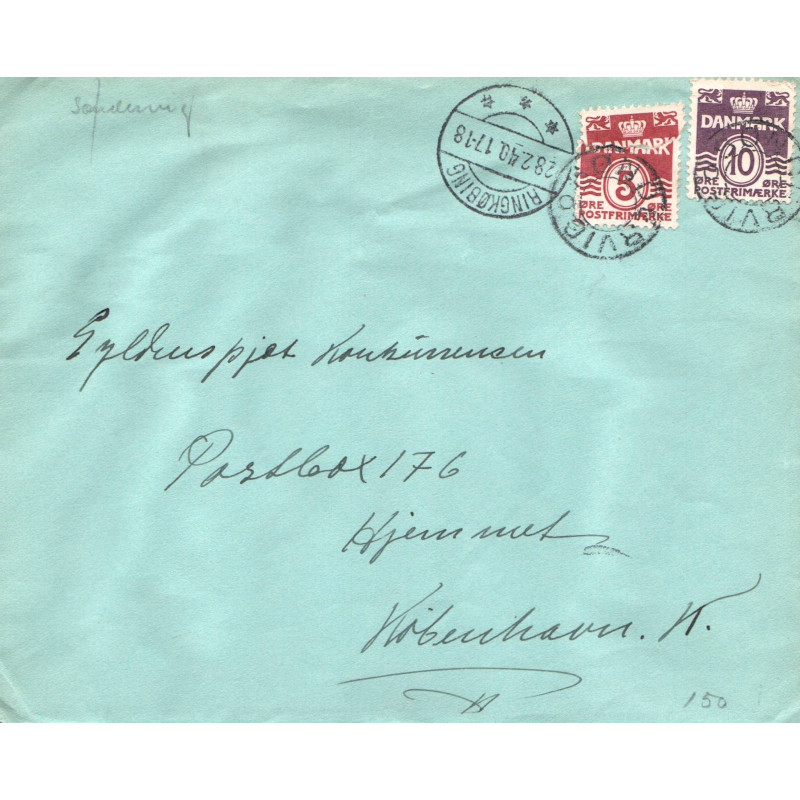 Søndervig
RINGKØBING
28.2.40.17-18
DANMARK
5
ØRE ØRE
POSTFRIMÆRKE
DANMARK
10
ØRE ØRE
POSTFRIMÆRKE
Gyldenspjet Konkurrencen
Postbox 176
Hjemmet
København. K.
150